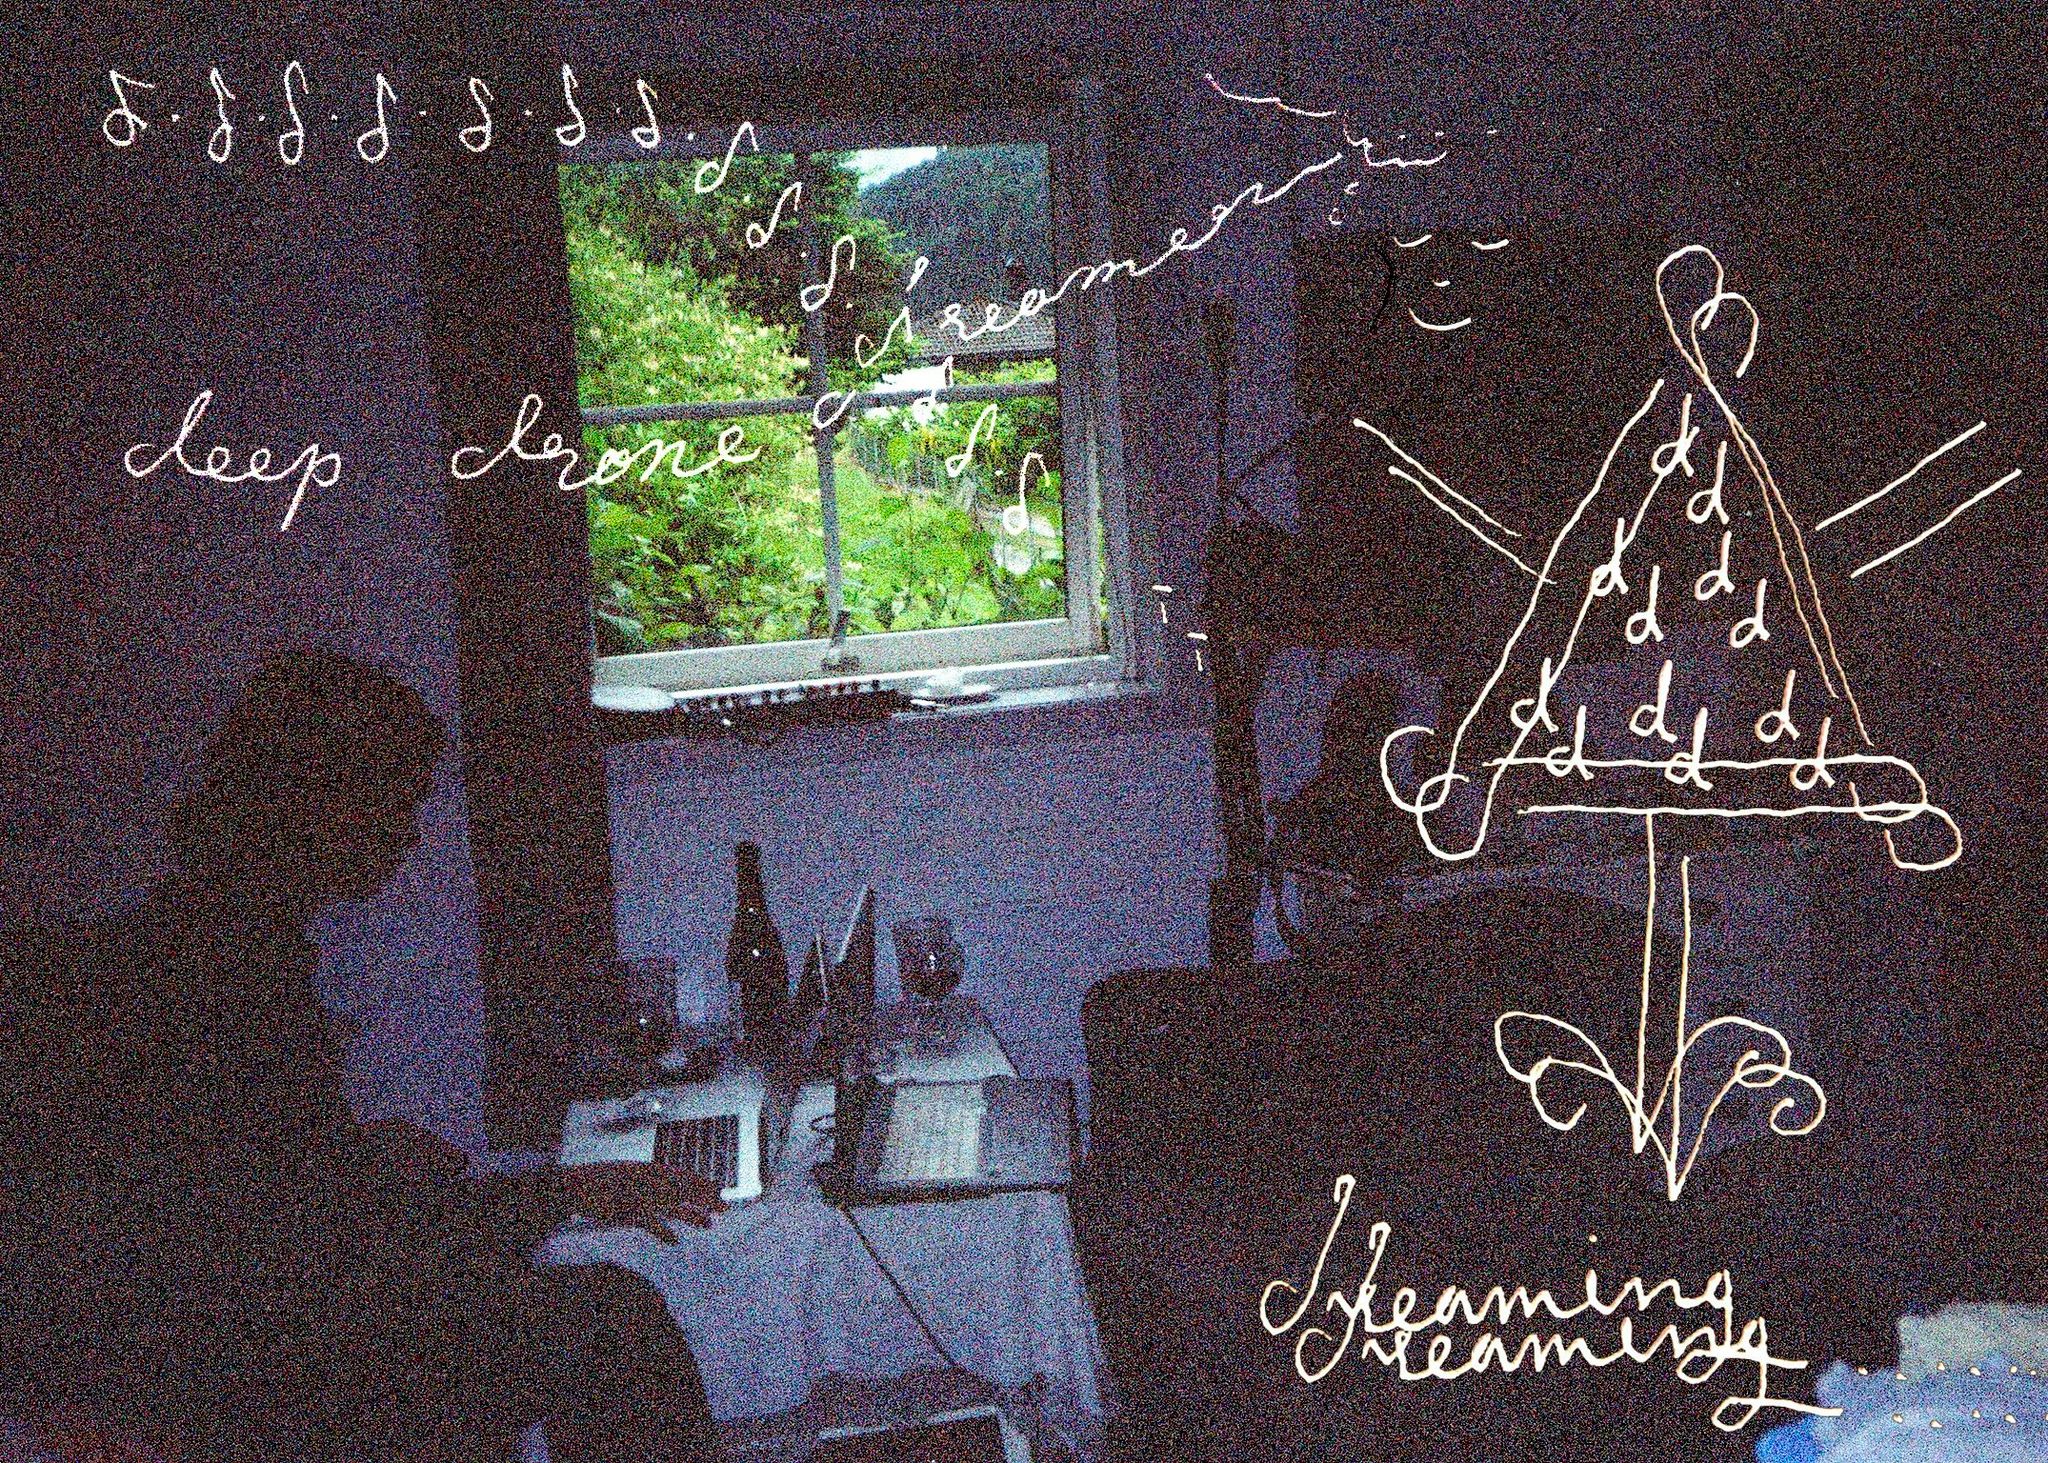 d.d.d.d.d.d.d.d.d.d.d.d.d
deep drone dreamer
d
d
d d
d d
d d d
d d d
dreaming
dreaming